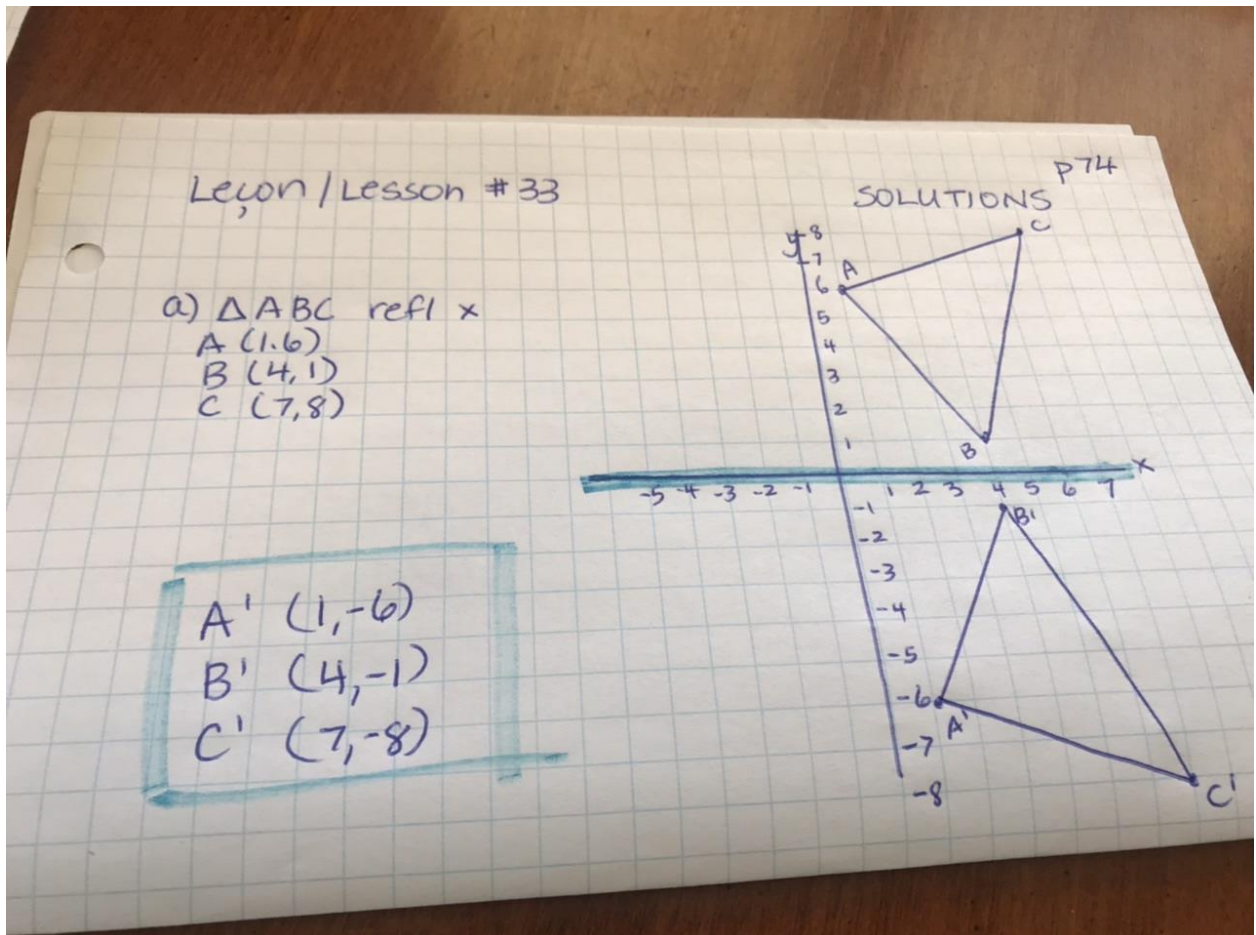 p74
Leçon / Lesson # 33
SOLUTIONS
a) △ABC refl x
A (1.6)
B (4,1)
C (7,8)
A' (1,-6)
B' (4,-1)
C' (7,-8)
y
8
7
6
5
4
3
2
1
A
C
B
x
-5 -4 -3 -2 -1 1 2 3 4 5 6 7
-1
-2
-3
-4
-5
-6
-7
-8
B'
A'
C'